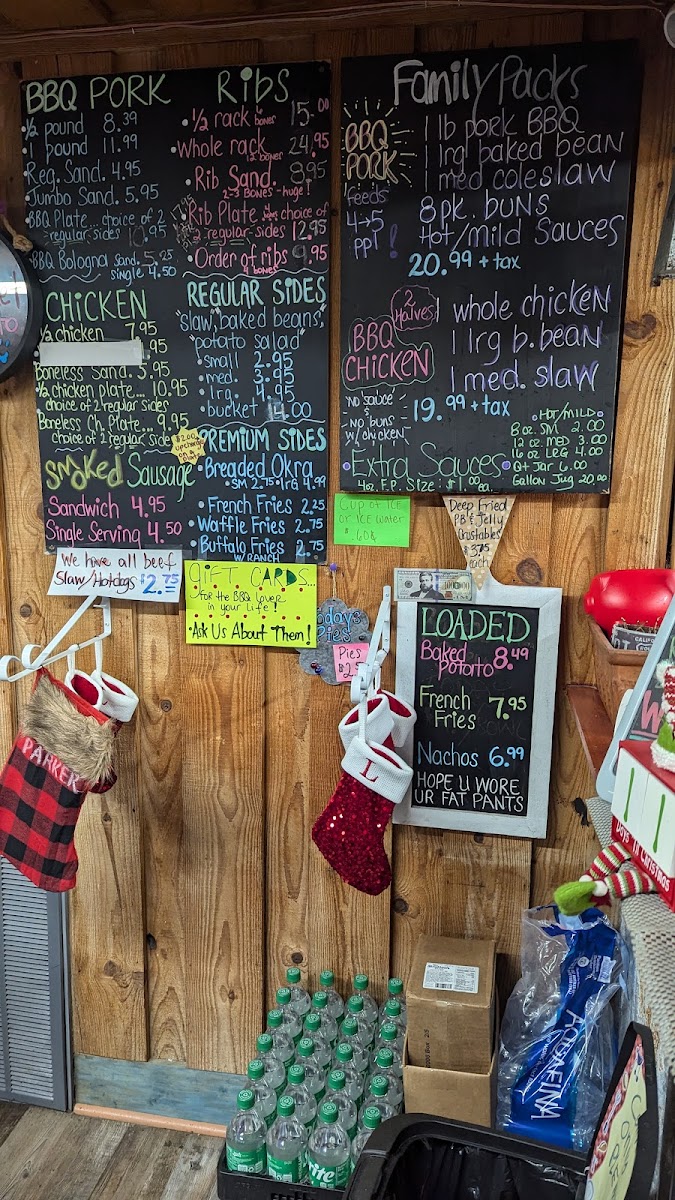 BBQ PORK
½ pound 8.39
1 pound 11.99
Reg. Sand. 4.95
Jumbo Sand. 5.95
BBQ Plate... choice of 2
regular sides 10.95
BBQ Bologna Sand. 5.25
single 4.50
CHICKEN
½ chicken 7.95
.95
Boneless Sand. 5.95
½ chicken plate... 10.95
choice of 2 regular sides
Boneless Ch. Plate... 9.95
choice of 2 regular sides
Smoked Sausage
Sandwich 4.95
Single Serving 4.50
Ribs
• ½ rack 6 bones 15.00
whole rack 24.95
12 bones
• Rib Sand. 8.95
2-3 Bones - huge!
• Rib Plate choice of
2 regular sides 12.95
• Order of ribs 9.95
4 bones
REGULAR SIDES
slaw, baked beans,
potato salad
• small 2.95
• med. 3.95
• lrg. 4.95
• bucket 14.00
$2.00 upcharge
PREMIUM SIDES
• Breaded Okra
SM 2.75 • lrg 4.99
• French Fries 2.25
• Waffle Fries 2.75
• Buffalo Fries 2.75
W/ RANCH
Family Packs
BBQ PORK
feeds
4→5
ppl!
1 lb pork BBQ
1 lrg baked bean
1 med coleslaw
8pk. buns
Hot/mild Sauces
20.99 + tax
2 Halves
BBQ
CHICKEN
NO SAUCE
&
NO buns
w/chicken
1 whole chicken
1 lrg b.bean
1 med. slaw
19.99 + tax
• Extra Sauces •
4oz. F.P. Size: $1.00 ea.
• HOT/MILD •
8 oz. SM 2.00
12 oz MED 3.00
16 oz LRG 4.00
Qt Jar 6.00
Gallon Jug 20.00
We have all beef
Slaw/Hotdogs $2.75
GIFT CARDS...
for the BBQ lover
in your life!
• Ask Us About Them!
Cup of ICE
or ICE water
$.60¢
Deep Fried
PB & Jelly
Crustables
$3.75
each
todays
Pies
Pies
LOADED
Baked
Potato 8.49
French
Fries 7.95
Nachos 6.99
HOPE U WORE
UR FAT PANTS
PARKER
L
DAYS 'TIL CHRISTMAS
AQUAFINA
Sprite